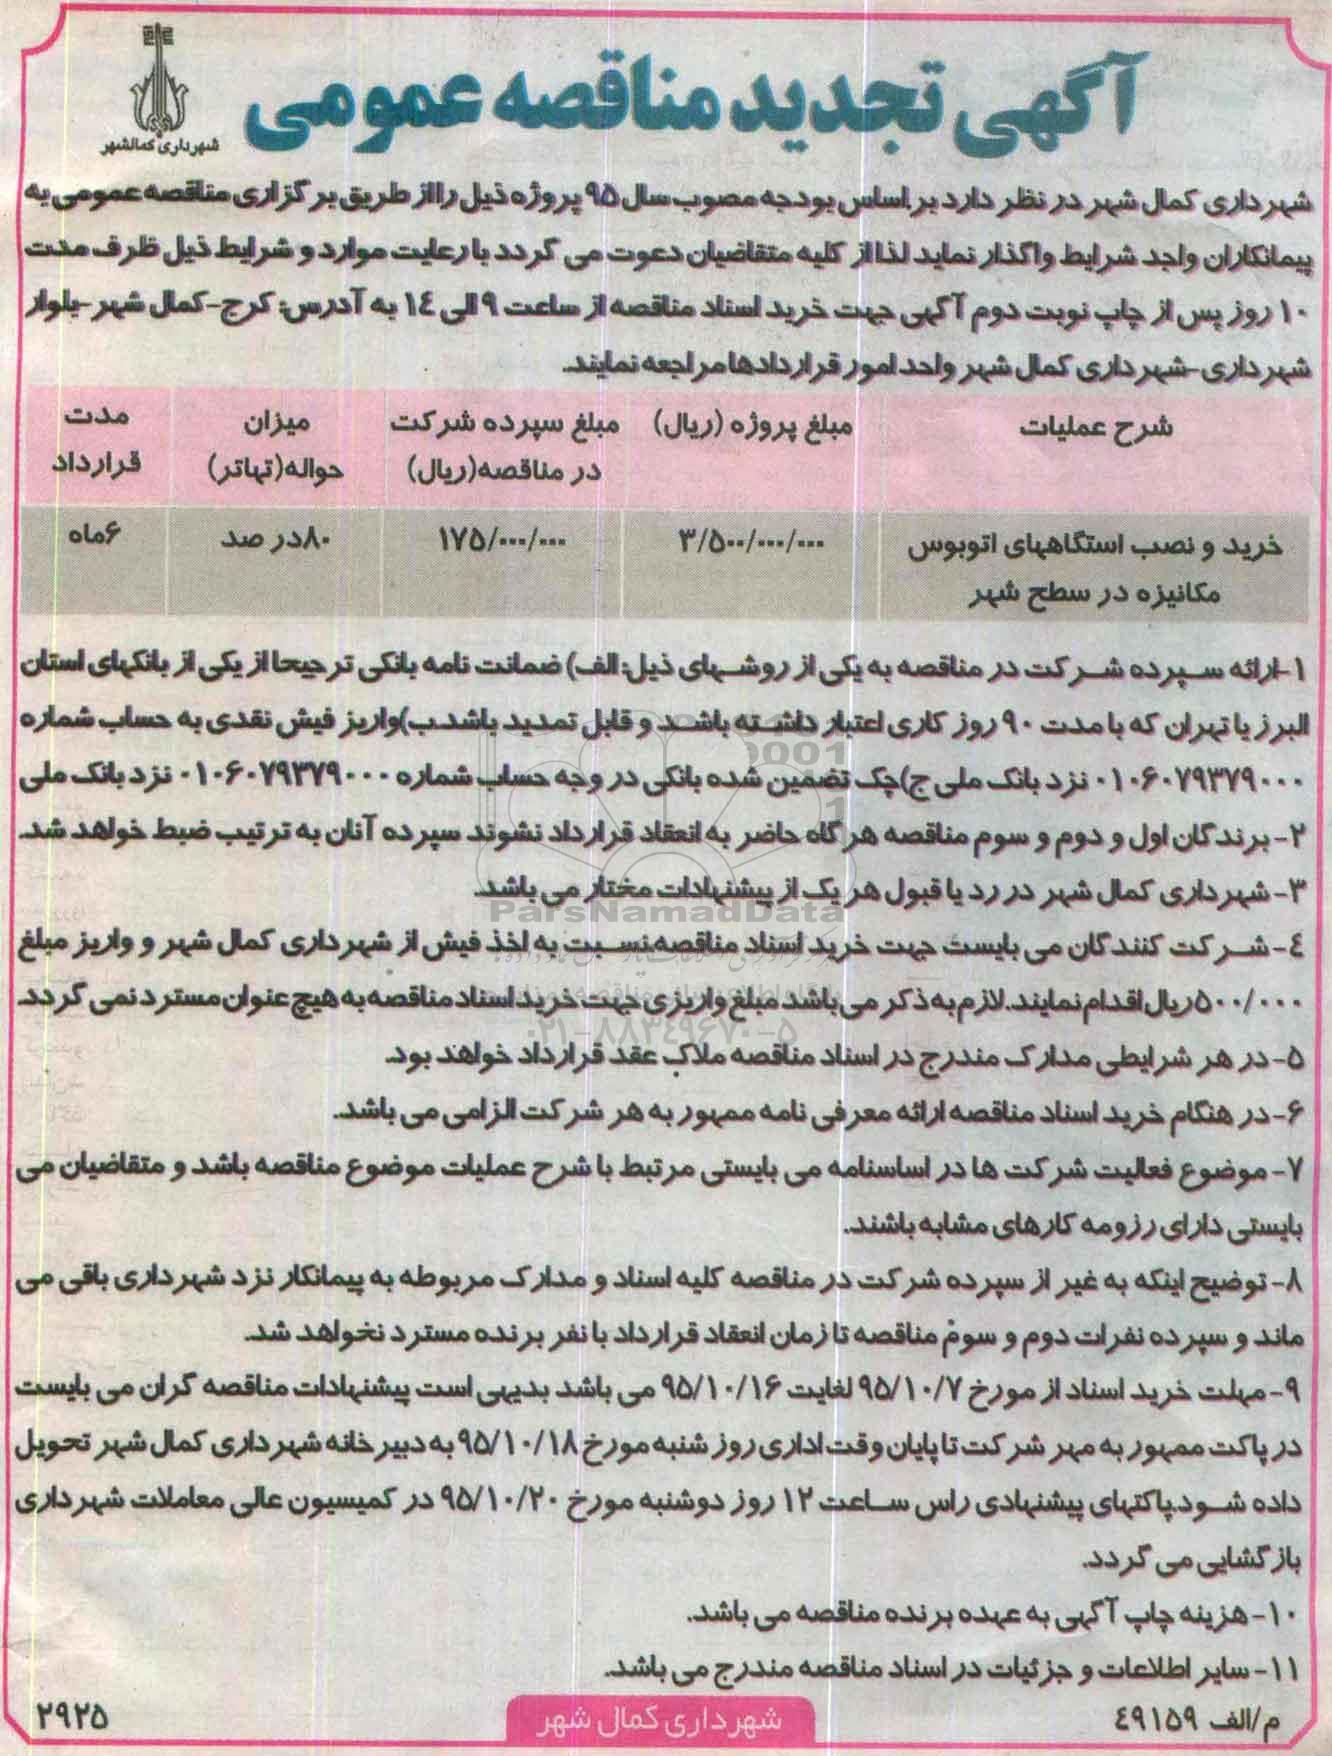 آگهی تجدید مناقصه عمومی
شهرداری کمالشهر
شهرداری کمال شهر در نظر دارد بر اساس بودجه مصوب سال ۹۵ پروژه ذیل را از طریق برگزاری مناقصه عمومی به
پیمانکاران واجد شرایط واگذار نماید لذا از کلیه متقاضیان دعوت می گردد با رعایت موارد و شرایط ذیل ظرف مدت
۱۰ روز پس از چاپ نوبت دوم آگهی جهت خرید اسناد مناقصه از ساعت ۹ الی ۱۴ به آدرس: کرج-کمال شهر-بلوار
شهرداری-شهرداری کمال شهر واحد امور قراردادها مراجعه نمایند.
شرح عملیات | مبلغ پروژه (ریال) | مبلغ سپرده شرکت در مناقصه(ریال) | میزان حواله(تهاتر) | مدت قرارداد
خرید و نصب استگاههای اتوبوس مکانیزه در سطح شهر | ۳/۵۰۰/۰۰۰/۰۰۰ | ۱۷۵/۰۰۰/۰۰۰ | ۸۰در صد | ۶ماه
۱-ارائه سپرده شرکت در مناقصه به یکی از روشهای ذیل: الف) ضمانت نامه بانکی ترجیحا از یکی از بانکهای استان
البرز یا تهران که با مدت ۹۰ روز کاری اعتبار داشته باشد و قابل تمدید باشد.ب)واریز فیش نقدی به حساب شماره
۰۱۰۶۰۷۹۳۷۹۰۰۰ نزد بانک ملی ج)چک تضمین شده بانکی در وجه حساب شماره ۰۱۰۶۰۷۹۳۷۹۰۰۰ نزد بانک ملی
۲- برندگان اول و دوم و سوم مناقصه هرگاه حاضر به انعقاد قرارداد نشوند سپرده آنان به ترتیب ضبط خواهد شد.
۳- شهرداری کمال شهر در رد یا قبول هر یک از پیشنهادات مختار می باشد.
ParsNamadData
۴- شرکت کنندگان می بایست جهت خرید اسناد مناقصه نسبت به اخذ فیش از شهرداری کمال شهر و واریز مبلغ
۵۰۰/۰۰۰ ریال اقدام نمایند. لازم به ذکر می باشد مبلغ واریزی جهت خرید اسناد مناقصه به هیچ عنوان مسترد نمی گردد.
۰۲۱-۸۸۳۴۹۶۷۰-۵
۵- در هر شرایطی مدارک مندرج در اسناد مناقصه ملاک عقد قرارداد خواهد بود.
۶- در هنگام خرید اسناد مناقصه ارائه معرفی نامه ممهور به هر شرکت الزامی می باشد.
۷- موضوع فعالیت شرکت ها در اساسنامه می بایستی مرتبط با شرح عملیات موضوع مناقصه باشد و متقاضیان می
بایستی دارای رزومه کارهای مشابه باشند.
۸- توضیح اینکه به غیر از سپرده شرکت در مناقصه کلیه اسناد و مدارک مربوطه به پیمانکار نزد شهرداری باقی می
ماند و سپرده نفرات دوم و سوم مناقصه تا زمان انعقاد قرارداد با نفر برنده مسترد نخواهد شد.
۹- مهلت خرید اسناد از مورخ ۹۵/۱۰/۷ لغایت ۹۵/۱۰/۱۶ می باشد بدیهی است پیشنهادات مناقصه گران می بایست
در پاکت ممهور به مهر شرکت تا پایان وقت اداری روز شنبه مورخ ۹۵/۱۰/۱۸ به دبیرخانه شهرداری کمال شهر تحویل
داده شود.پاکتهای پیشنهادی راس ساعت ۱۲ روز دوشنبه مورخ ۹۵/۱۰/۲۰ در کمیسیون عالی معاملات شهرداری
بازگشایی می گردد.
۱۰- هزینه چاپ آگهی به عهده برنده مناقصه می باشد.
۱۱- سایر اطلاعات و جزئیات در اسناد مناقصه مندرج می باشد.
م/الف ۴۹۱۵۹
شهرداری کمال شهر
۲۹۲۵